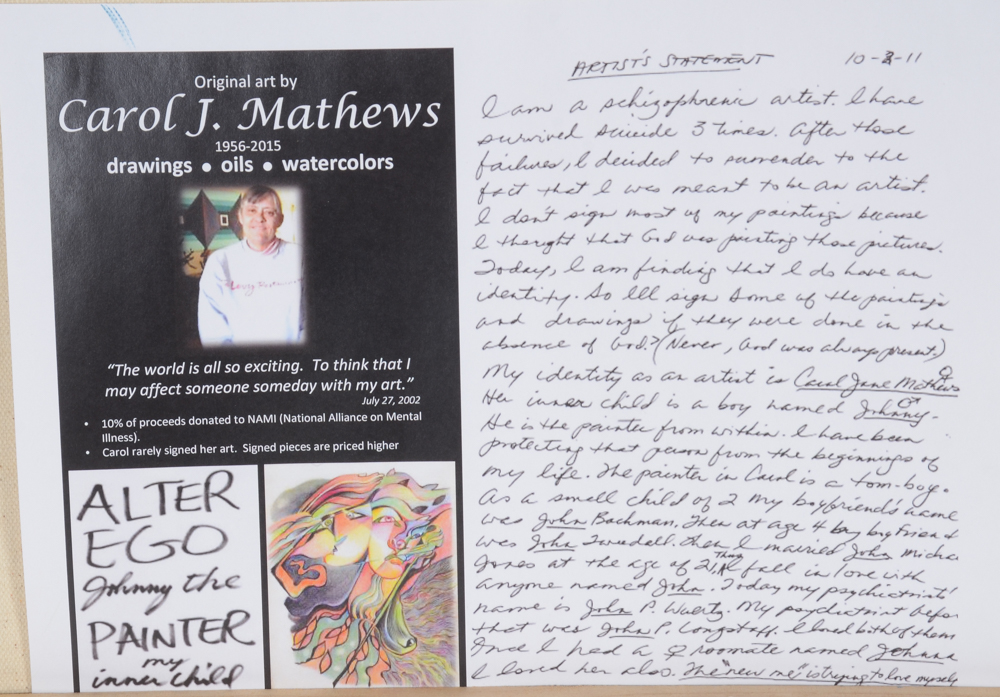 Original art by
Carol J. Mathews
1956-2015
drawings • oils • watercolors
"The world is all so exciting. To think that I
may affect someone someday with my art."
July 27, 2002
• 10% of proceeds donated to NAMI (National Alliance on Mental
Illness).
• Carol rarely signed her art. Signed pieces are priced higher
ALTER
EGO
Johnny the
PAINTER
my
inner child
ARTIST'S STATEMENT 10-3-11
I am a schizophrenic artist. I have
survived suicide 3 times. After those
failures, I decided to surrender to the
fact that I was meant to be an artist.
I don't sign most of my paintings because
I thought that God was painting those pictures.
Today, I am finding that I do have an
identity. So I'll sign some of the paintings
and drawings if they were done in the
absence of God.? (Never, God was always present.)
My identity as an artist is Carol Jane Mathews ♀
Her inner child is a boy named Johnny ♂.
He is the painter from within. I have been
protecting that person from the beginnings of
my life. The painter in Carol is a tom-boy.
As a small child of 2 my boyfriend's name
was John Bachman. Then at age 4 my boyfriend
was John . Then I married John Micha
Jones at the age of 21. fall in love with
anyone named John. Today my psychiatrist'
name is John P. . My psychiatrist befor
that was John P. Longstaff. I loved both of them
And I had a ♀ roomate named Johnna
I loved her also. The "new me" is trying to love myself